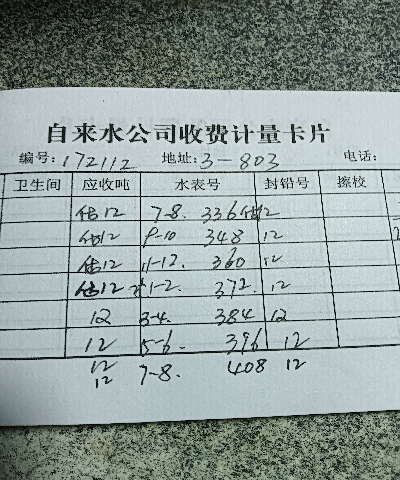 自来水公司收费计量卡片
编号:172112 地址:3-803 电话:
卫生间 应收吨 水表号 封铅号 擦校
估12 7-8. 336 估12
估12 9-10 348 12
估12 11-12. 360 12
估12 1-2. 372. 12
12 3-4. 384 12
12 5-6. 396 12
12
12 7-8. 408 12